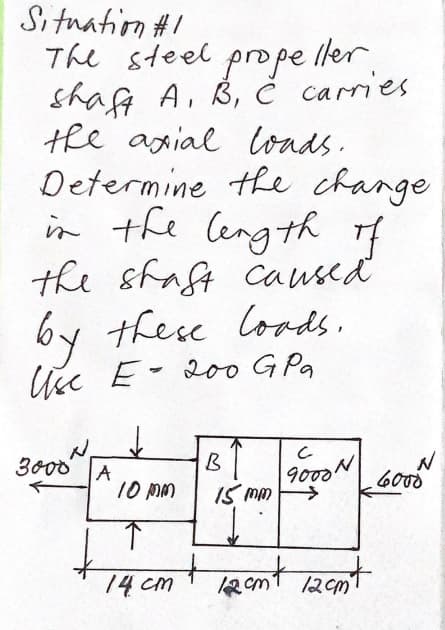 Situation #1
The steel propeller
shaft A, B, C carries
the axial loads.
Determine the change
in the length of
the shaft caused
by these loads.
Use E - 200 GPa
3000 N
A
10 mm
B
15 mm
C
9000 N
6000 N
14 cm
12 cm
12 cm